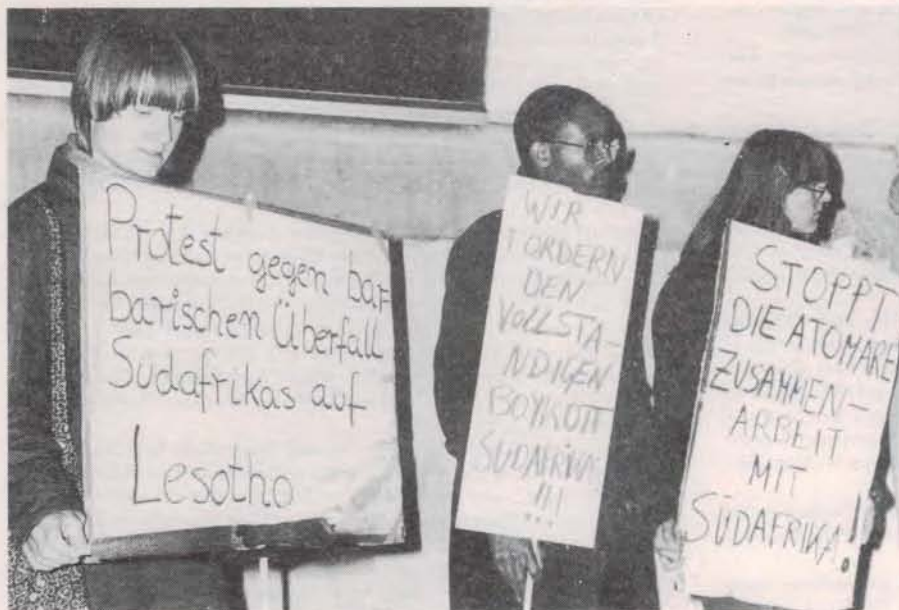 Protest gegen bar-
barischen Überfall
Südafrikas auf
Lesotho
WIR
FORDERN
DEN
VOLLSTÄ-
NDIGEN
BOYKOTT
SÜDAFRIKA
!!!
STOPPT
DIE ATOMARE
ZUSAMMEN-
ARBEIT
MIT
SÜDAFRIKA!